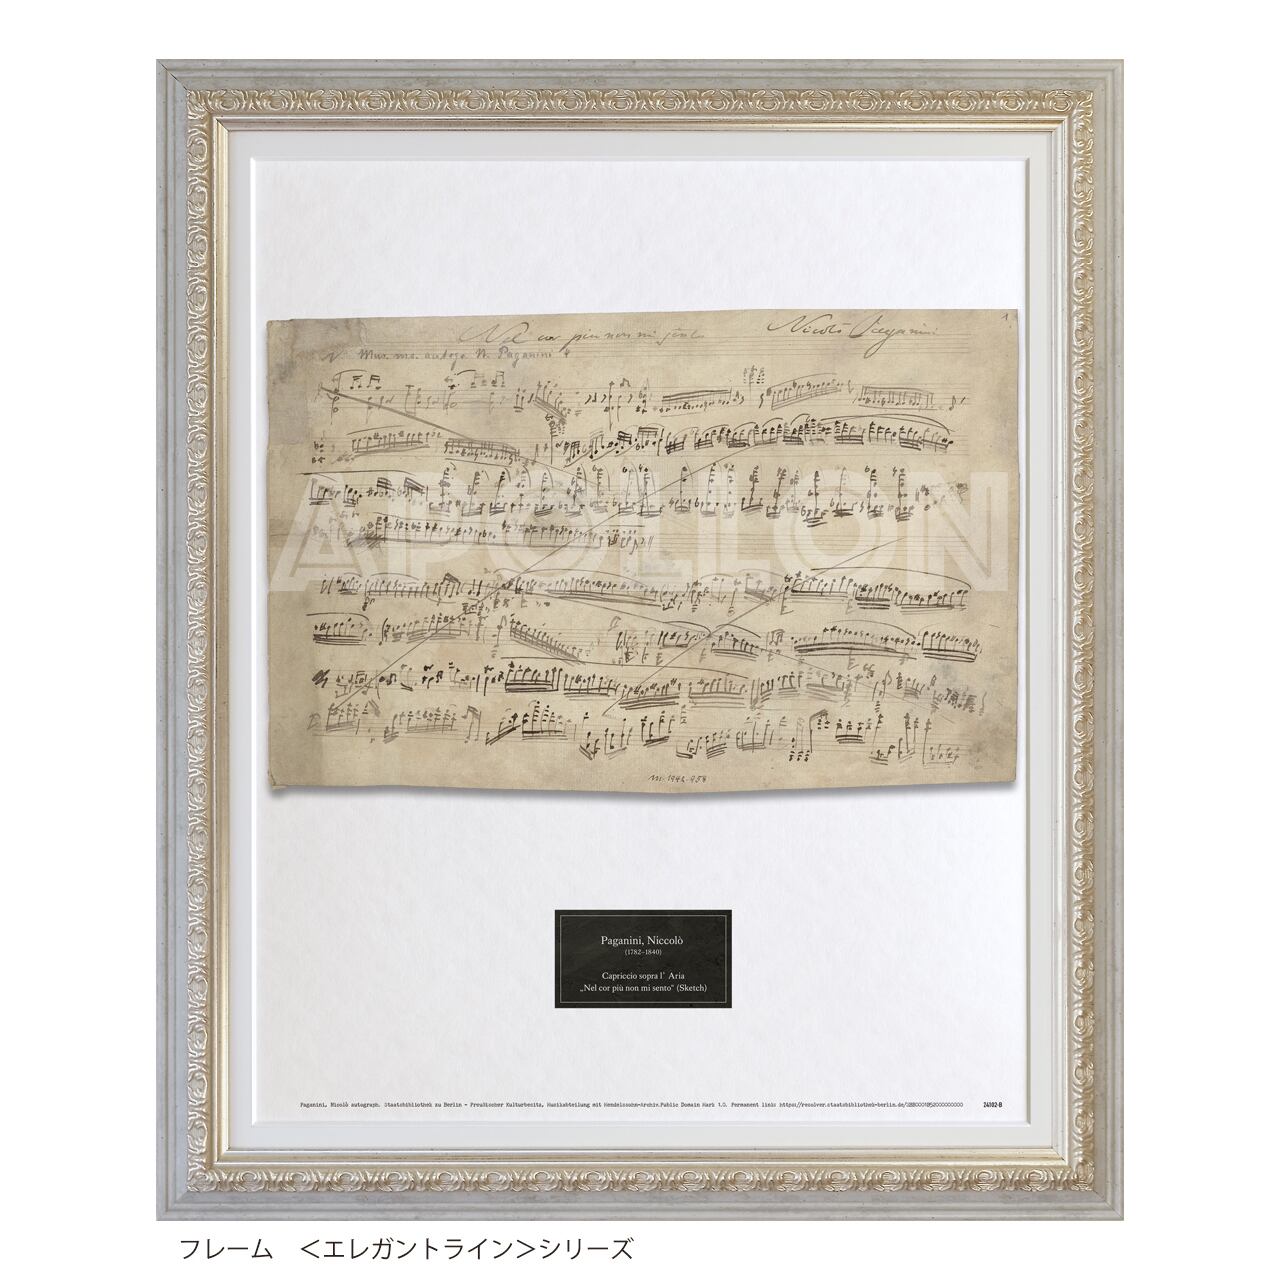 Nel cor piu non mi sento
Nicolò Paganini
1.
Mus. ms. autogr. N. Paganini 4
APOLLON
m. 1942.958
Paganini, Niccolò
(1782-1840)
Capriccio sopra l' Aria
„Nel cor più non mi sento“ (Sketch)
Paganini, Nicolò autograph. Staatsbibliothek zu Berlin – Preußischer Kulturbesitz, Musikabteilung mit Mendelssohn-Archiv. Public Domain Mark 1.0. Permanent link: 24102-B
フレーム ＜エレガントライン＞シリーズ